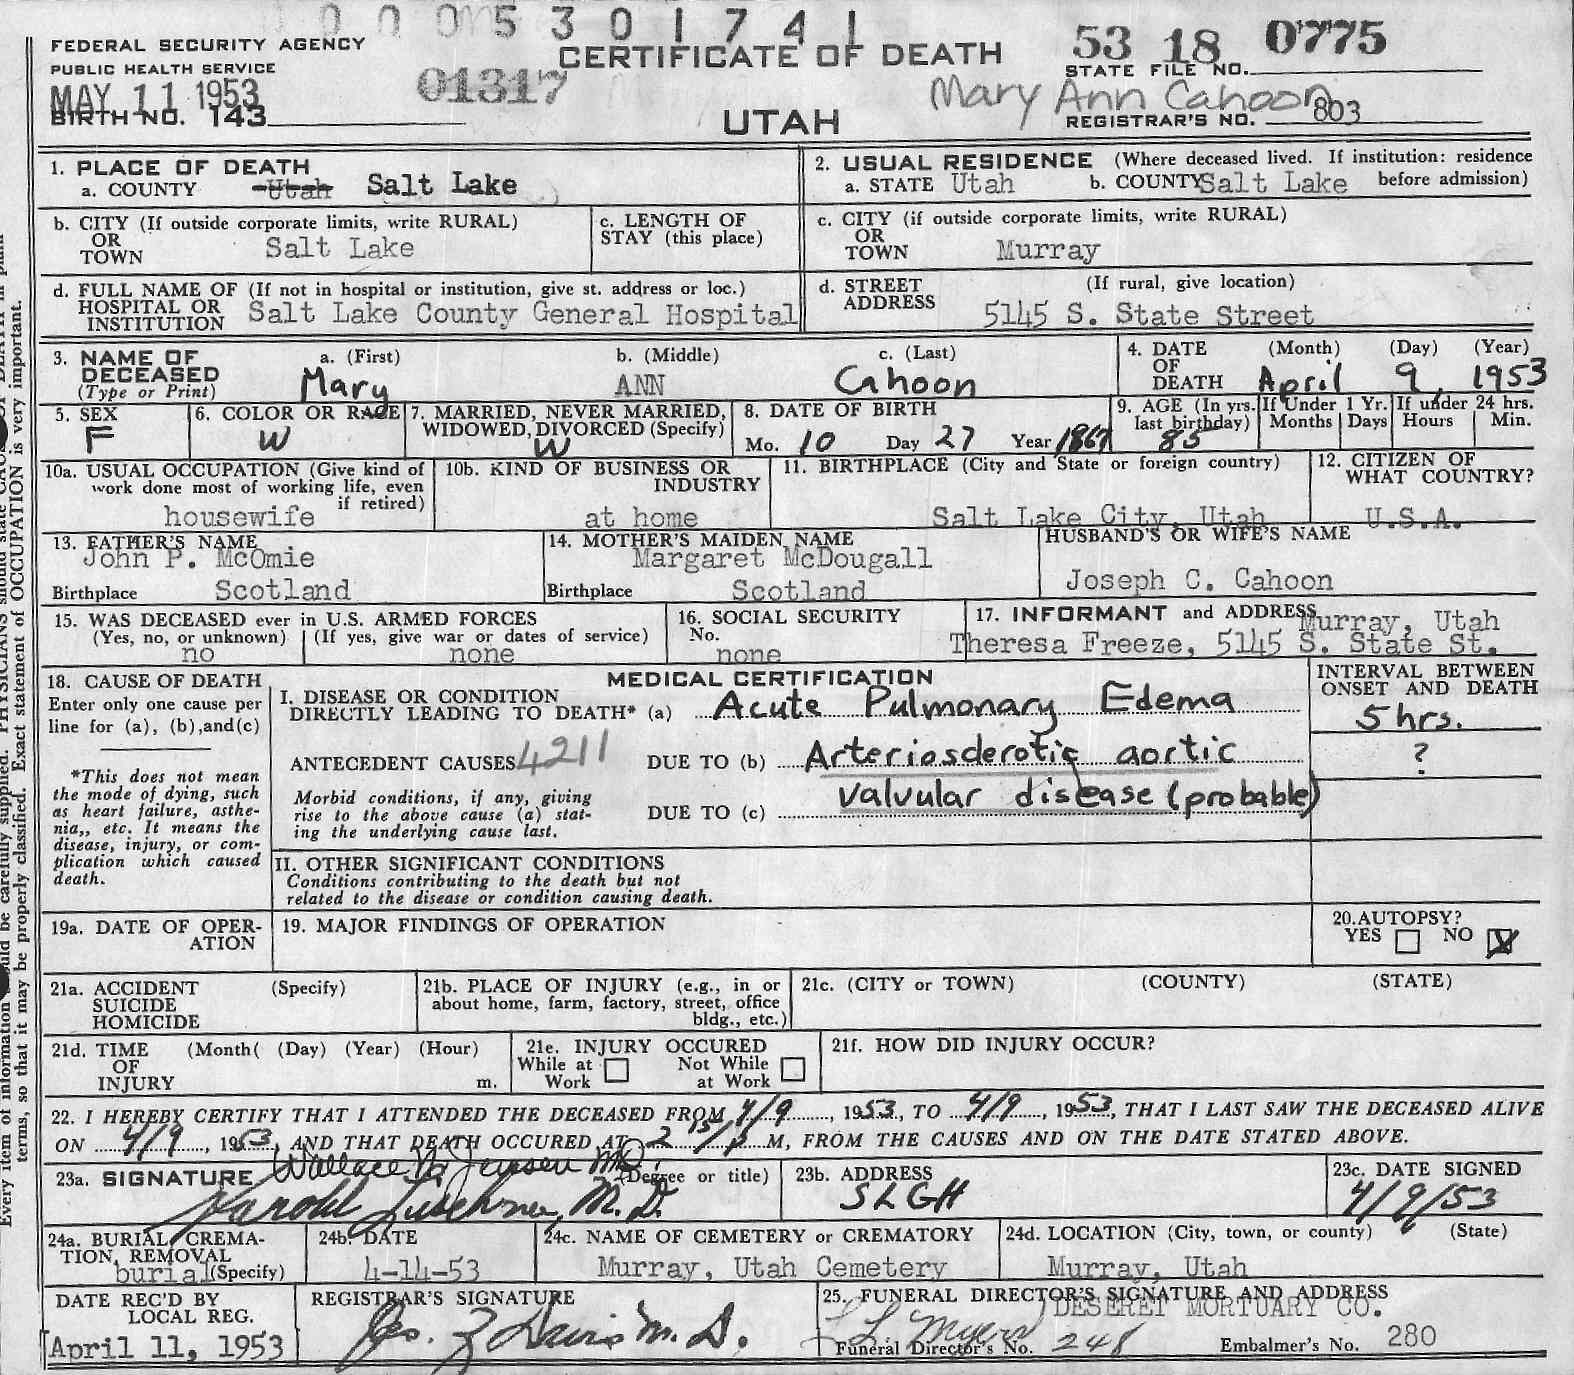 0 0 0 5 3 0 1 7 4 1
FEDERAL SECURITY AGENCY
PUBLIC HEALTH SERVICE
MAY 11 1953
BIRTH NO. 143
01317
CERTIFICATE OF DEATH
UTAH
53 18 0775
STATE FILE NO.
Mary Ann Cahoon
REGISTRAR'S NO. 803
1. PLACE OF DEATH
a. COUNTY Utah Salt Lake
2. USUAL RESIDENCE (Where deceased lived. If institution: residence before admission)
a. STATE Utah b. COUNTY Salt Lake
b. CITY (If outside corporate limits, write RURAL) OR TOWN Salt Lake
c. LENGTH OF STAY (this place)
c. CITY (if outside corporate limits, write RURAL) OR TOWN Murray
d. FULL NAME OF (If not in hospital or institution, give st. address or loc.)
HOSPITAL OR INSTITUTION Salt Lake County General Hospital
d. STREET ADDRESS (If rural, give location)
5145 S. State Street
3. NAME OF DECEASED (Type or Print)
a. (First) Mary b. (Middle) ANN c. (Last) Cahoon
4. DATE OF DEATH (Month) (Day) (Year)
April 9, 1953
5. SEX F
6. COLOR OR RACE W
7. MARRIED, NEVER MARRIED, WIDOWED, DIVORCED (Specify) W
8. DATE OF BIRTH
Mo. 10 Day 27 Year 1867
9. AGE (In yrs. last birthday) 85
If Under 1 Yr. Months Days
If under 24 hrs. Hours Min.
10a. USUAL OCCUPATION (Give kind of work done most of working life, even if retired)
housewife
10b. KIND OF BUSINESS OR INDUSTRY
at home
11. BIRTHPLACE (City and State or foreign country)
Salt Lake City, Utah
12. CITIZEN OF WHAT COUNTRY?
U.S.A.
13. FATHER'S NAME
John P. McOmie
Birthplace Scotland
14. MOTHER'S MAIDEN NAME
Margaret McDougall
Birthplace Scotland
HUSBAND'S OR WIFE'S NAME
Joseph C. Cahoon
15. WAS DECEASED ever in U.S. ARMED FORCES
(Yes, no, or unknown) (If yes, give war or dates of service)
no none
16. SOCIAL SECURITY No.
none
17. INFORMANT and ADDRESS Murray, Utah
Theresa Freeze, 5145 S. State St.
18. CAUSE OF DEATH
Enter only one cause per line for (a), (b), and (c)
*This does not mean the mode of dying, such as heart failure, asthenia,, etc. It means the disease, injury, or complication which caused death.
MEDICAL CERTIFICATION
INTERVAL BETWEEN ONSET AND DEATH
I. DISEASE OR CONDITION DIRECTLY LEADING TO DEATH* (a) Acute Pulmonary Edema
5 hrs.
ANTECEDENT CAUSES 4211 DUE TO (b) Arteriosclerotic aortic
?
Morbid conditions, if any, giving rise to the above cause (a) stating the underlying cause last.
DUE TO (c) valvular disease (probable)
II. OTHER SIGNIFICANT CONDITIONS
Conditions contributing to the death but not related to the disease or condition causing death.
19a. DATE OF OPERATION
19. MAJOR FINDINGS OF OPERATION
20. AUTOPSY?
YES NO X
21a. ACCIDENT SUICIDE HOMICIDE (Specify)
21b. PLACE OF INJURY (e.g., in or about home, farm, factory, street, office bldg., etc.)
21c. (CITY or TOWN) (COUNTY) (STATE)
21d. TIME OF INJURY (Month( (Day) (Year) (Hour) m.
21e. INJURY OCCURED
While at Work Not While at Work
21f. HOW DID INJURY OCCUR?
22. I HEREBY CERTIFY THAT I ATTENDED THE DECEASED FROM 4/9, 1953, TO 4/9, 1953, THAT I LAST SAW THE DECEASED ALIVE
ON 4/9, 1953, AND THAT DEATH OCCURED AT 2 15 P M, FROM THE CAUSES AND ON THE DATE STATED ABOVE.
Wallace Jensen MD
23a. SIGNATURE (Degree or title)
Harold M.D.
23b. ADDRESS
SLGH
23c. DATE SIGNED
4/9/53
24a. BURIAL, CREMATION, REMOVAL (Specify)
burial
24b. DATE
4-14-53
24c. NAME OF CEMETERY or CREMATORY
Murray, Utah Cemetery
24d. LOCATION (City, town, or county) (State)
Murray, Utah
DATE REC'D BY LOCAL REG.
April 11, 1953
REGISTRAR'S SIGNATURE
Geo. Z Davis M.D.
25. FUNERAL DIRECTOR'S SIGNATURE AND ADDRESS
DESERET MORTUARY CO.
Myers
Funeral Director's No. 248
Embalmer's No. 280